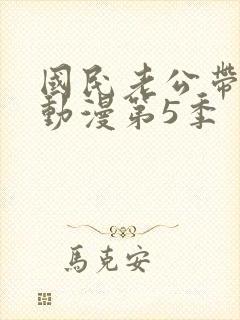 國民老公帶
動漫第5季
馬克安